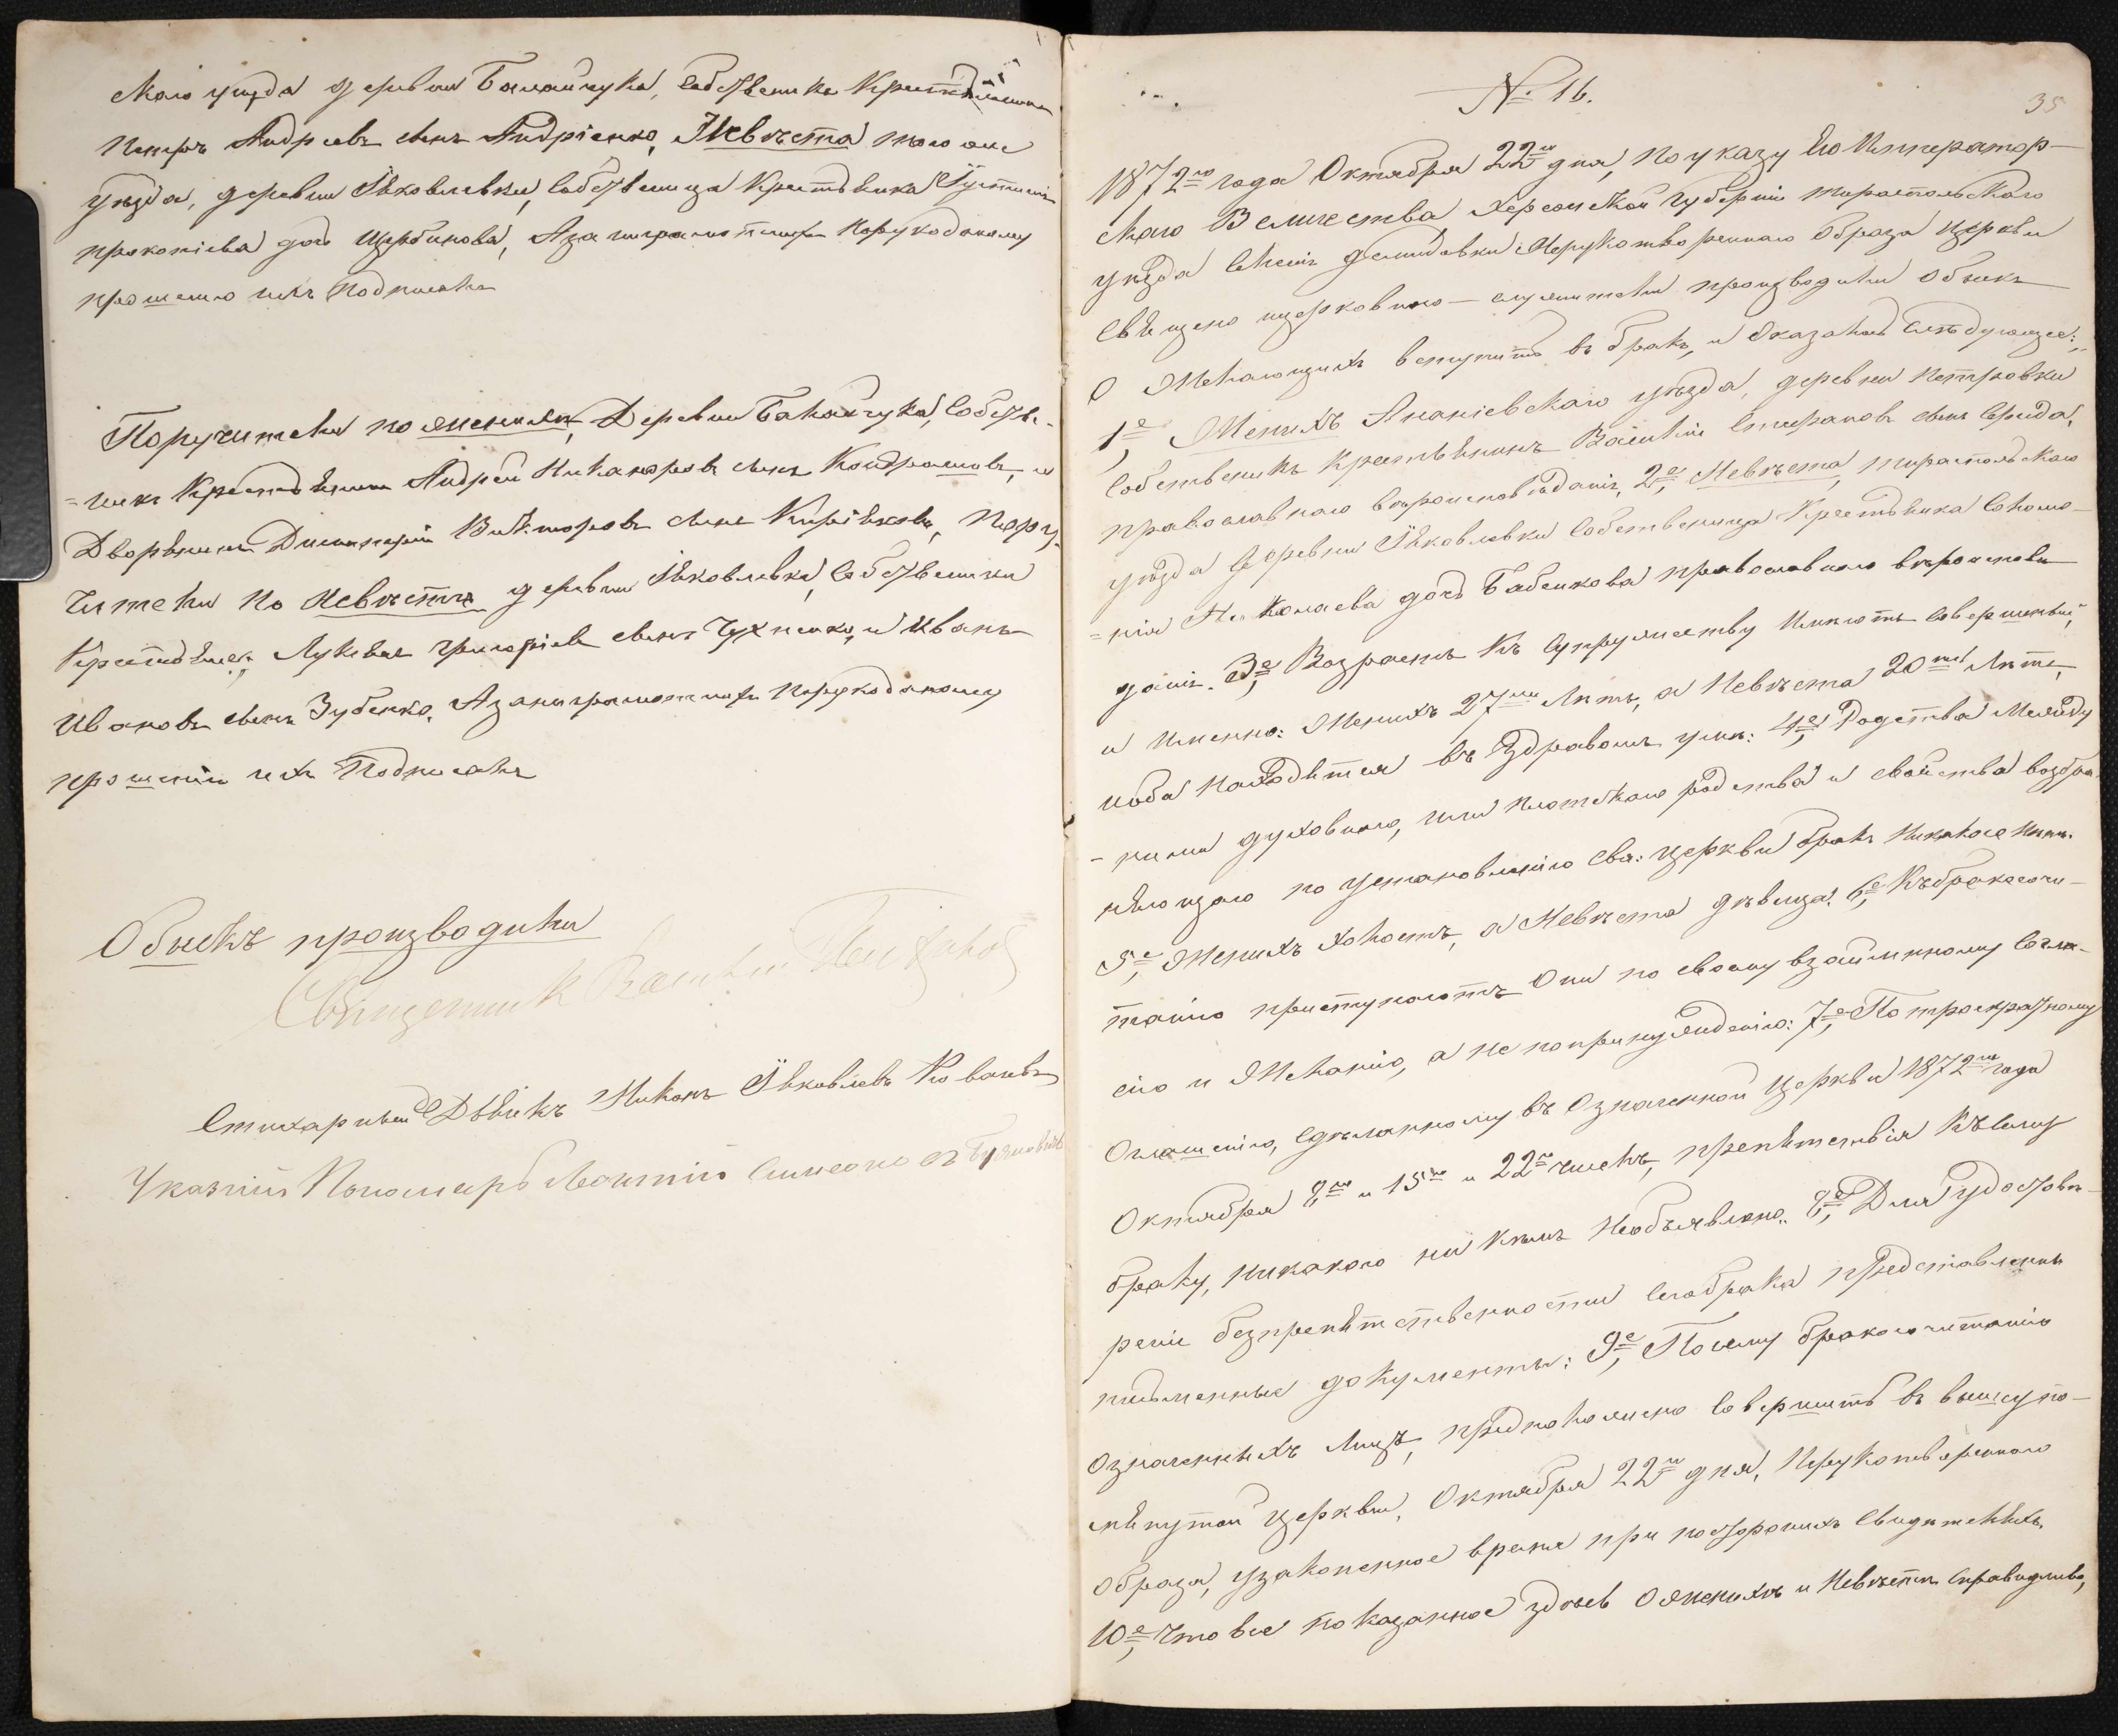 скаго уѣзда деревни Балайчука, собственика Крестьянина
Петръ Андреевъ сынъ Андріенко, Невѣста того же
уѣзда, деревни Яковлевки, собственица Крестьянка Іустинія
прокопіева дочь Щербинова, А за неграмотныхъ По рукоданому
прошенію ихъ Подписалъ
Поручители по женихѣ, Деревни Балайчука, Собстве-
=никъ Крестьянинъ Андрей Никаноровъ сынъ Кондрашовъ, и
Дворянинъ Димитрій Викторовъ сынъ Кирiяковъ, Пору-
чители по Невѣстѣ деревни Яковлевки, Собственики
Крестьяне: Лукьянъ григоріевъ сынъ Чухненко, и Иванъ
Ивановъ сынъ Зубенко, А за неграмотныхъ По рукоданому
прошенію ихъ Подписалъ
Обыскъ производили
Священникъ Василій
Стихарный Дьячекъ Никонъ Яковлевъ Ковалевъ
Указній Пономарь Леонтій Симеоновъ
№ 16.
35
1872го года Октября 22го дня, по указу Его Император-
скаго Величества Херсонской Губерніи тираспольскаго
уѣзда Селенія демидовки Нерукотвореннаго Образа церкви
Священо церковно-служители производили Обыскъ
О Желающихъ вступить въ бракъ, и Оказалось Слѣдующее:
1е, Женихъ Ананіевскаго уѣзда, деревни Петровки
Собственикъ Крестьянинъ Василій Стефановъ сынъ Середа,
православнаго вѣроисповѣданія, 2е, Невѣста, тираспольскаго
уѣзда Деревни Яковлевки Собственица Крестьянка Соломо-
=нія Николаева дочь Бабенкова православнаго вѣроисповѣ-
данія. 3е, Возрастъ Къ Супружеству Имѣютъ Совершенный,
и Именно: Женихъ 27ми Лѣтъ, а Невѣста 20ти Лѣтъ,
и оба находятся въ Здравомъ умѣ: 4е, Родства Между
-ними духовнаго, или Плотскаго родства и свойства возбра-
няющаго по установленію Свя: церкви бракъ Никакого Нѣтъ.
5е, Женихъ Холостъ, а Невѣста дѣвица: 6е, Къ бракосоче-
танію приступаютъ Они по своему взаимному Согла-
сію и Желанію, а не по принужденію: 7е, По троекратному
Оглашенію, сдѣланному въ Означенной Церкви 1872го года
Октября 8го и 15го и 22го чиселъ, препятствія Къ Сему
браку, никакого ни Кѣмъ Необъявлено. 8е, Для Удостовѣ-
ренія безпрепятственности Сего брака представлены
письменные документы: 9е, Посему бракосочитанію
означенныхъ Лицъ, предположено Совершить въ вышеупо-
мянутой Церкви, Октября 22го дня, Нерукотвореннаго
Образа, узаконенное время при постороннихъ Свидѣтеляхъ.
10е, Что все показанное здѣсь О женихѣ и Невѣстѣ Справедливо,